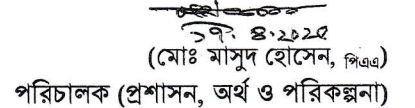 ১৭.৪.২০২৫
(মোঃ মাসুদ হোসেন, পিএএ)
পরিচালক (প্রশাসন, অর্থ ও পরিকল্পনা)